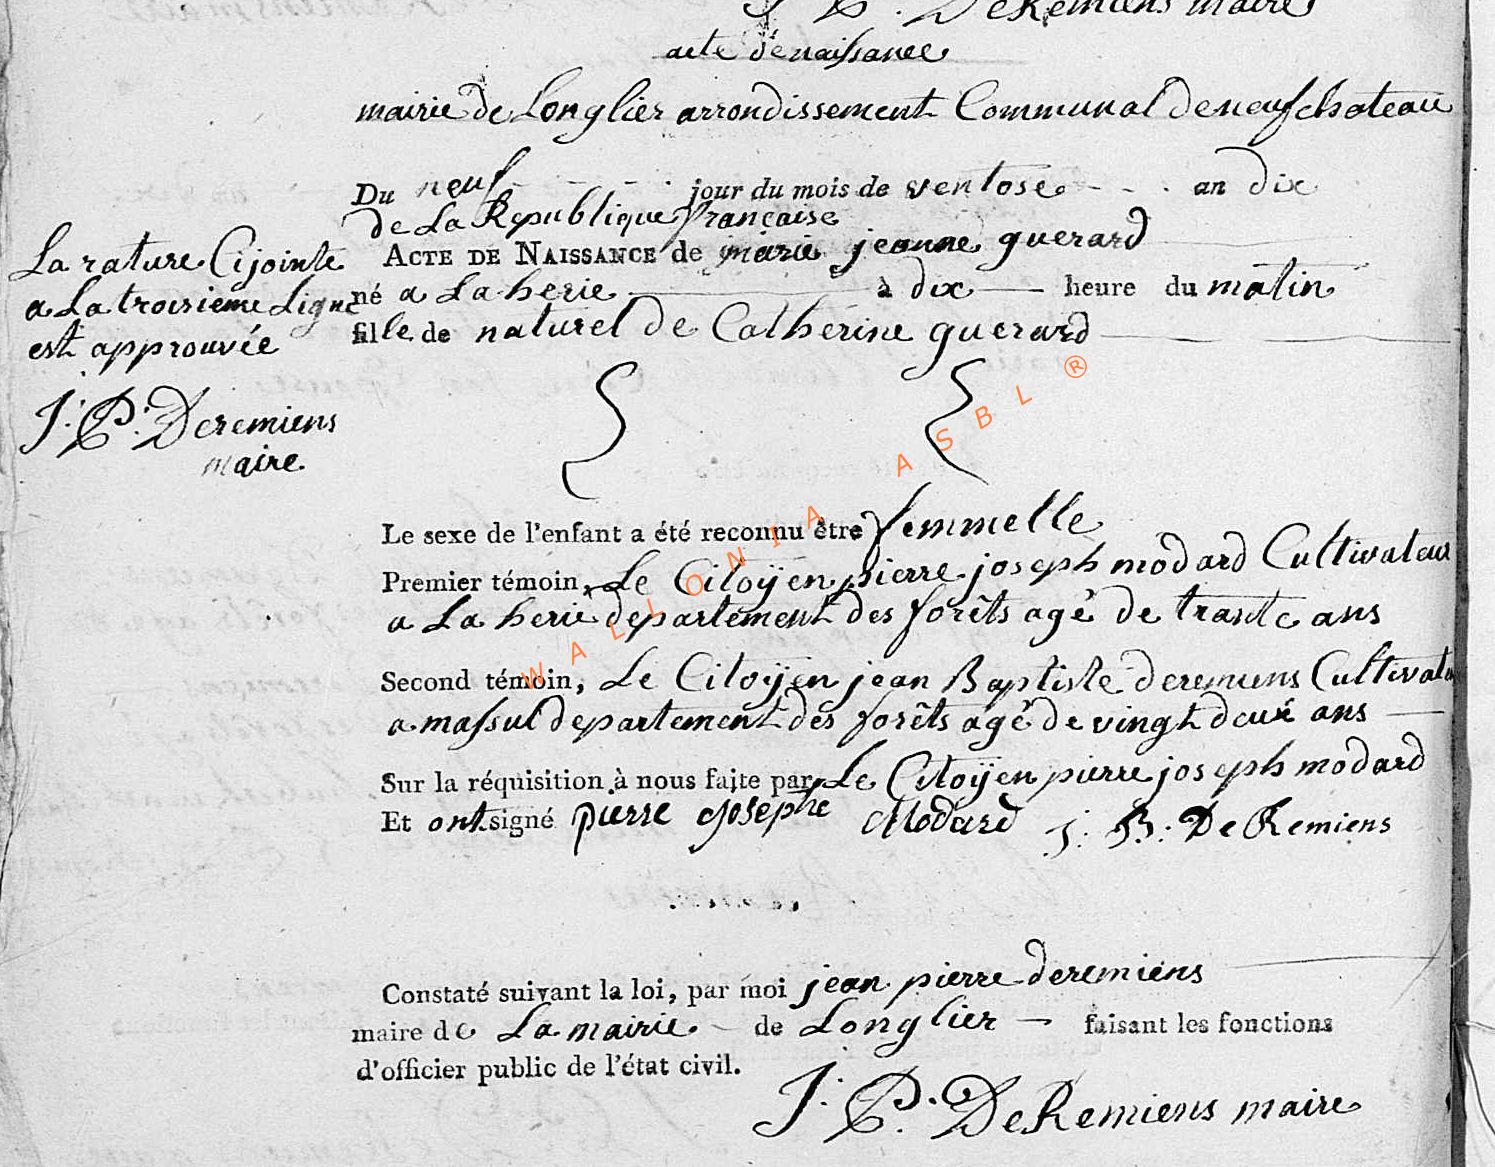 J. P. DeRemiens maire
acte de naissance
mairie de Longlier arrondissement Communal de neufchateau
Du neuf - - - jour du mois de ventose - - - an dix
de La Republique française
La rature Cijointe
a La troisieme Ligne
est approuvée
J. P. Deremiens
maire
ACTE DE NAISSANCE de marie jeanne guerard
né a La herie à dix heure du matin
fille de naturel de Catherine guerard
Le sexe de l'enfant a été reconnu être femmelle
Premier témoin, Le Citoÿen pierre joseph modard Cultivateur
a La herie departement des forêts agé de trante ans
Second témoin, Le Citoÿen jean Baptiste deremiens Cultivateur
a massul departement des forêts agé de vingt deux ans
Sur la réquisition à nous faite par Le Citoÿen pierre joseph modard
Et ont signé pierre Josephe Modard J. B. DeRemiens
Constaté suivant la loi, par moi jean pierre deremiens
maire de La mairie de Longlier faisant les fonctions
d'officier public de l'état civil.
J. P. DeRemiens maire
WALLONIA ASBL ®